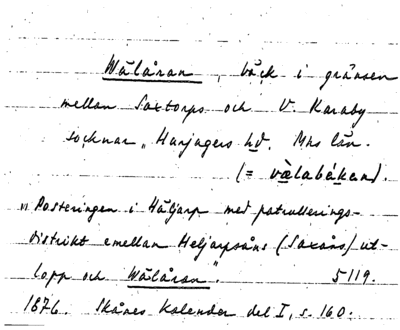 Wälåran, bäck i gränsen
mellan Saxtorps och V. Karaby
socknar, Harjagers hd. Mhs län.
(= välabäken).
"Posteringen i Häljarp med patrullerings-
distrikt emellan Heljarpsåns (Saxåns) ut-
lopp och Wälåran". 5119.
1876. Skånes Kalender del I, s. 160.